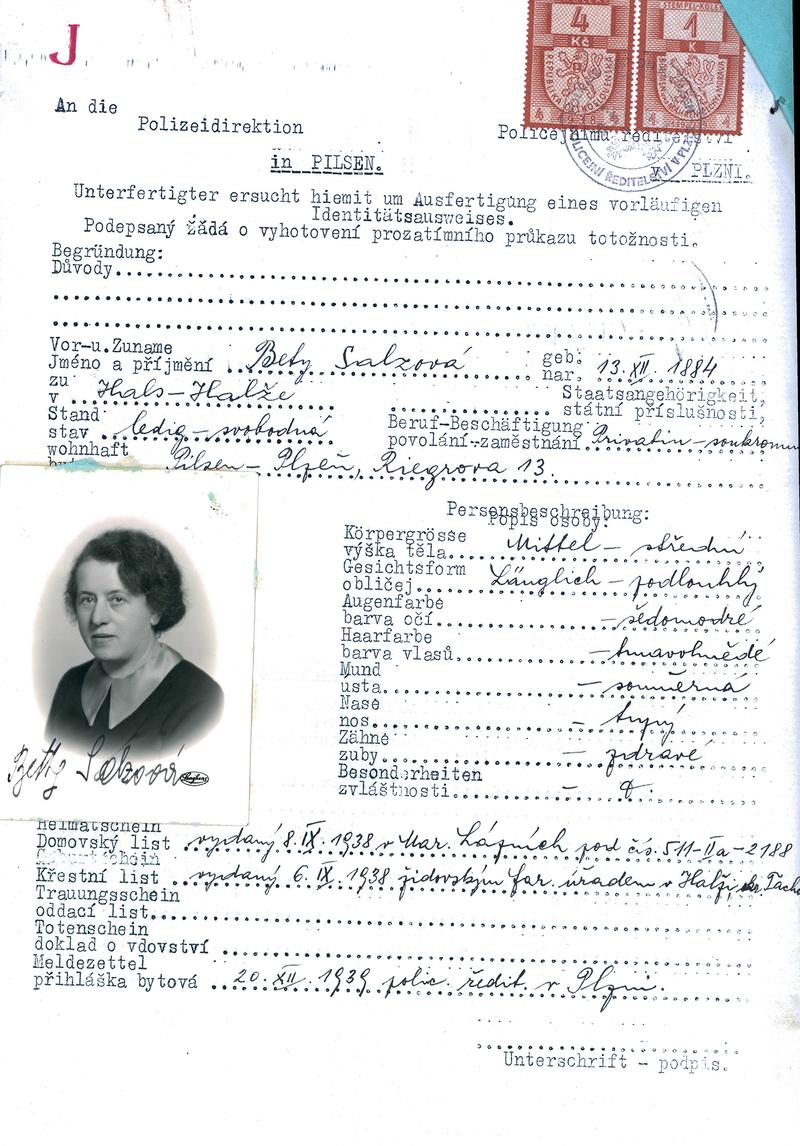 J
4
Kč
1
K
An die
Polizeidirektion
in PILSEN.
Policejnímu ředitelství
v PLZNI.
POLICEJNÍ ŘEDITELSTVÍ V PLZNI
Unterfertigter ersucht hiemit um Ausfertigung eines vorläufigen
Identitätsausweises.
Podepsaný žádá o vyhotovení prozatímního průkazu totožnosti.
Begründung:
Důvody
Vor-u.Zuname
Jméno a příjmění Bety Salzová
geb:
nar. 13. XII. 1884
zu
v Hals-Halže
Staatsangehörigkeit,
státní příslušnosti,
Stand
stav ledig - svobodná
Beruf-Beschäftigung
povolání-zaměstnání Privatin - soukrom
wohnhaft
Pilsen - Plzeň, Riegrova 13.
Personsbeschreibung:
Popis osoby:
Körpergrösse
výška těla Mittel - střední
Gesichtsform
obličej Länglich - podlouhlý
Augenfarbe
barva očí - šedomodré
Haarfarbe
barva vlasů - tmavohnědé
Mund
ústa - souměrná
Nase
nos - tupý
Zähne
zuby - zdravé
Besonderheiten
zvláštnosti
Betty Salzová
Heimatschein
Domovský list vydaný 8. IX. 1938 v Mar. Lázních pod čís. 511-IIa-2188
Geburtschein
Křestní list vydaný 6. IX. 1938 židovským far. úřadem v Halži, okr. Tach
Trauungsschein
oddací list
Totenschein
doklad o vdovství
Meldezettel
přihláška bytová 20. XII. 1939 polic. ředit. v Plzni.
Unterschrift - podpis.